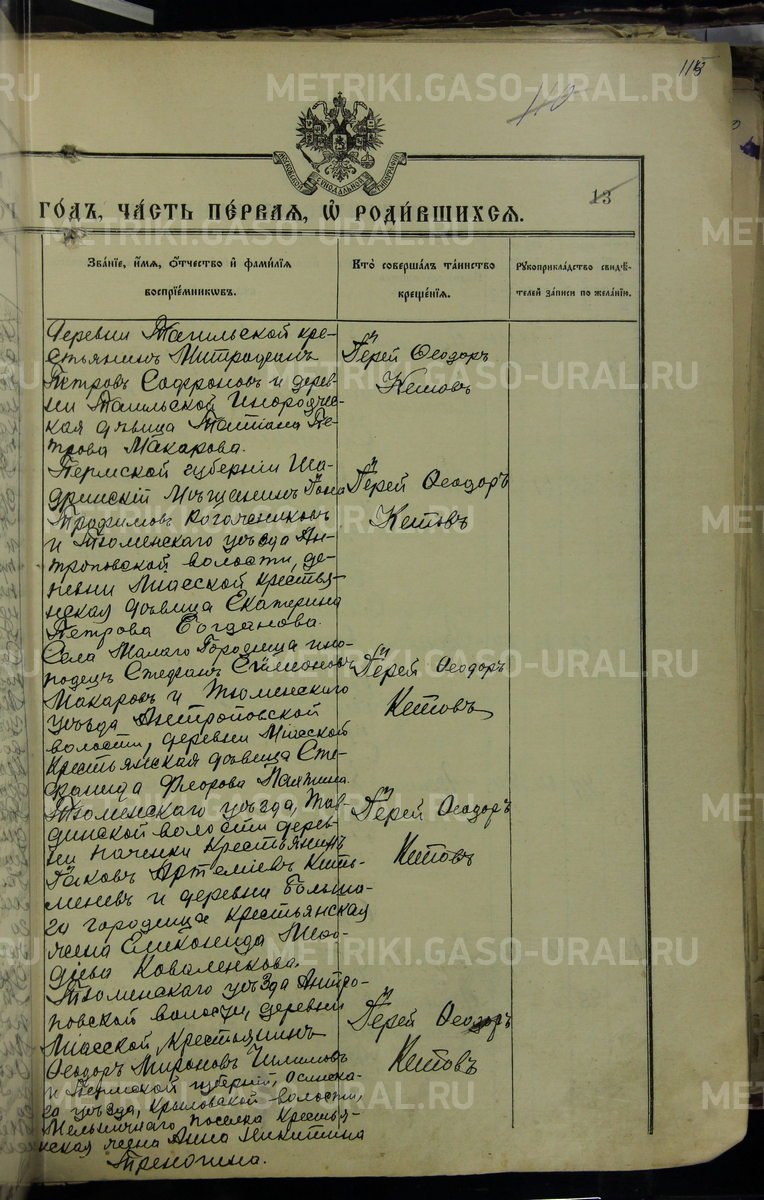 113
110
МОСКОВСКОЙ СѴНОДАЛЬНОЙ ТИПОГРАФІИ
13
ГО́ДЪ, ЧА́СТЬ ПЕ́РВАЯ, Ѡ҆ РОДИ́ВШИХСЯ.
Зва́нїе, и҆́мя, ѻ҆́тчество и҆ фами́лїя
воспрїе́мниковъ.
Кто̀ соверша́лъ та́инство
креще́нїя.
Рꙋкоприкла́дство свидѣ́-
телей за́писи по жела́нїю.
деревни Тагильской кре-
стьянинъ Митрофанъ
Петровъ Софроновъ и дерев-
ни Тагильской Инородче-
ская дѣвица Татіана Пе-
трова Макарова.
Іерей Ѳеодоръ
Кетовъ
Пермской губерніи Ша-
дринскій Мѣщанинъ Іона
Трофимовъ
и Тюменскаго уѣзда Ан-
троповской волости, де-
ревни Міасской крестья-
нская дѣвица Екатерина
Петрова Богданова.
Іерей Ѳеодоръ
Кетовъ
Села Малаго Городища ино-
родецъ Стефанъ Симеоновъ
Макаровъ и Тюменскаго
уѣзда Антроповской
волости, деревни Міасской
крестьянская дѣвица Сте-
фанида Флорова
Іерей Ѳеодоръ
Кетовъ
Тюменскаго уѣзда, Тав-
динской волости дерев-
ни Паченки крестьянинъ
Іаковъ Артеміевъ
и деревни Больша-
го городища крестьянская
жена
Коваленкова.
Іерей Ѳеодоръ
Кетовъ
Тюменскаго уѣзда Антро-
повской волости, деревни
Міасской, крестьянинъ
Ѳеодоръ Мироновъ
и Пермской губерніи, Осинска-
го уѣзда, Крыловской волости,
Мельничнаго поселка крестья-
нская жена Анна Никитина
Треногина.
Іерей Ѳеодоръ
Кетовъ
METRIKI.GASO-URAL.RU